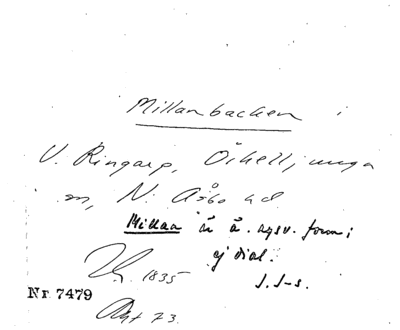 Millanbacken i
V. Ringarp, Örkelljunga
sn, N. Åsbo hd
Millan är ä. rgsv. form;
ej dial.
1835
J. J-s.
Nr 7479
Avst 73.